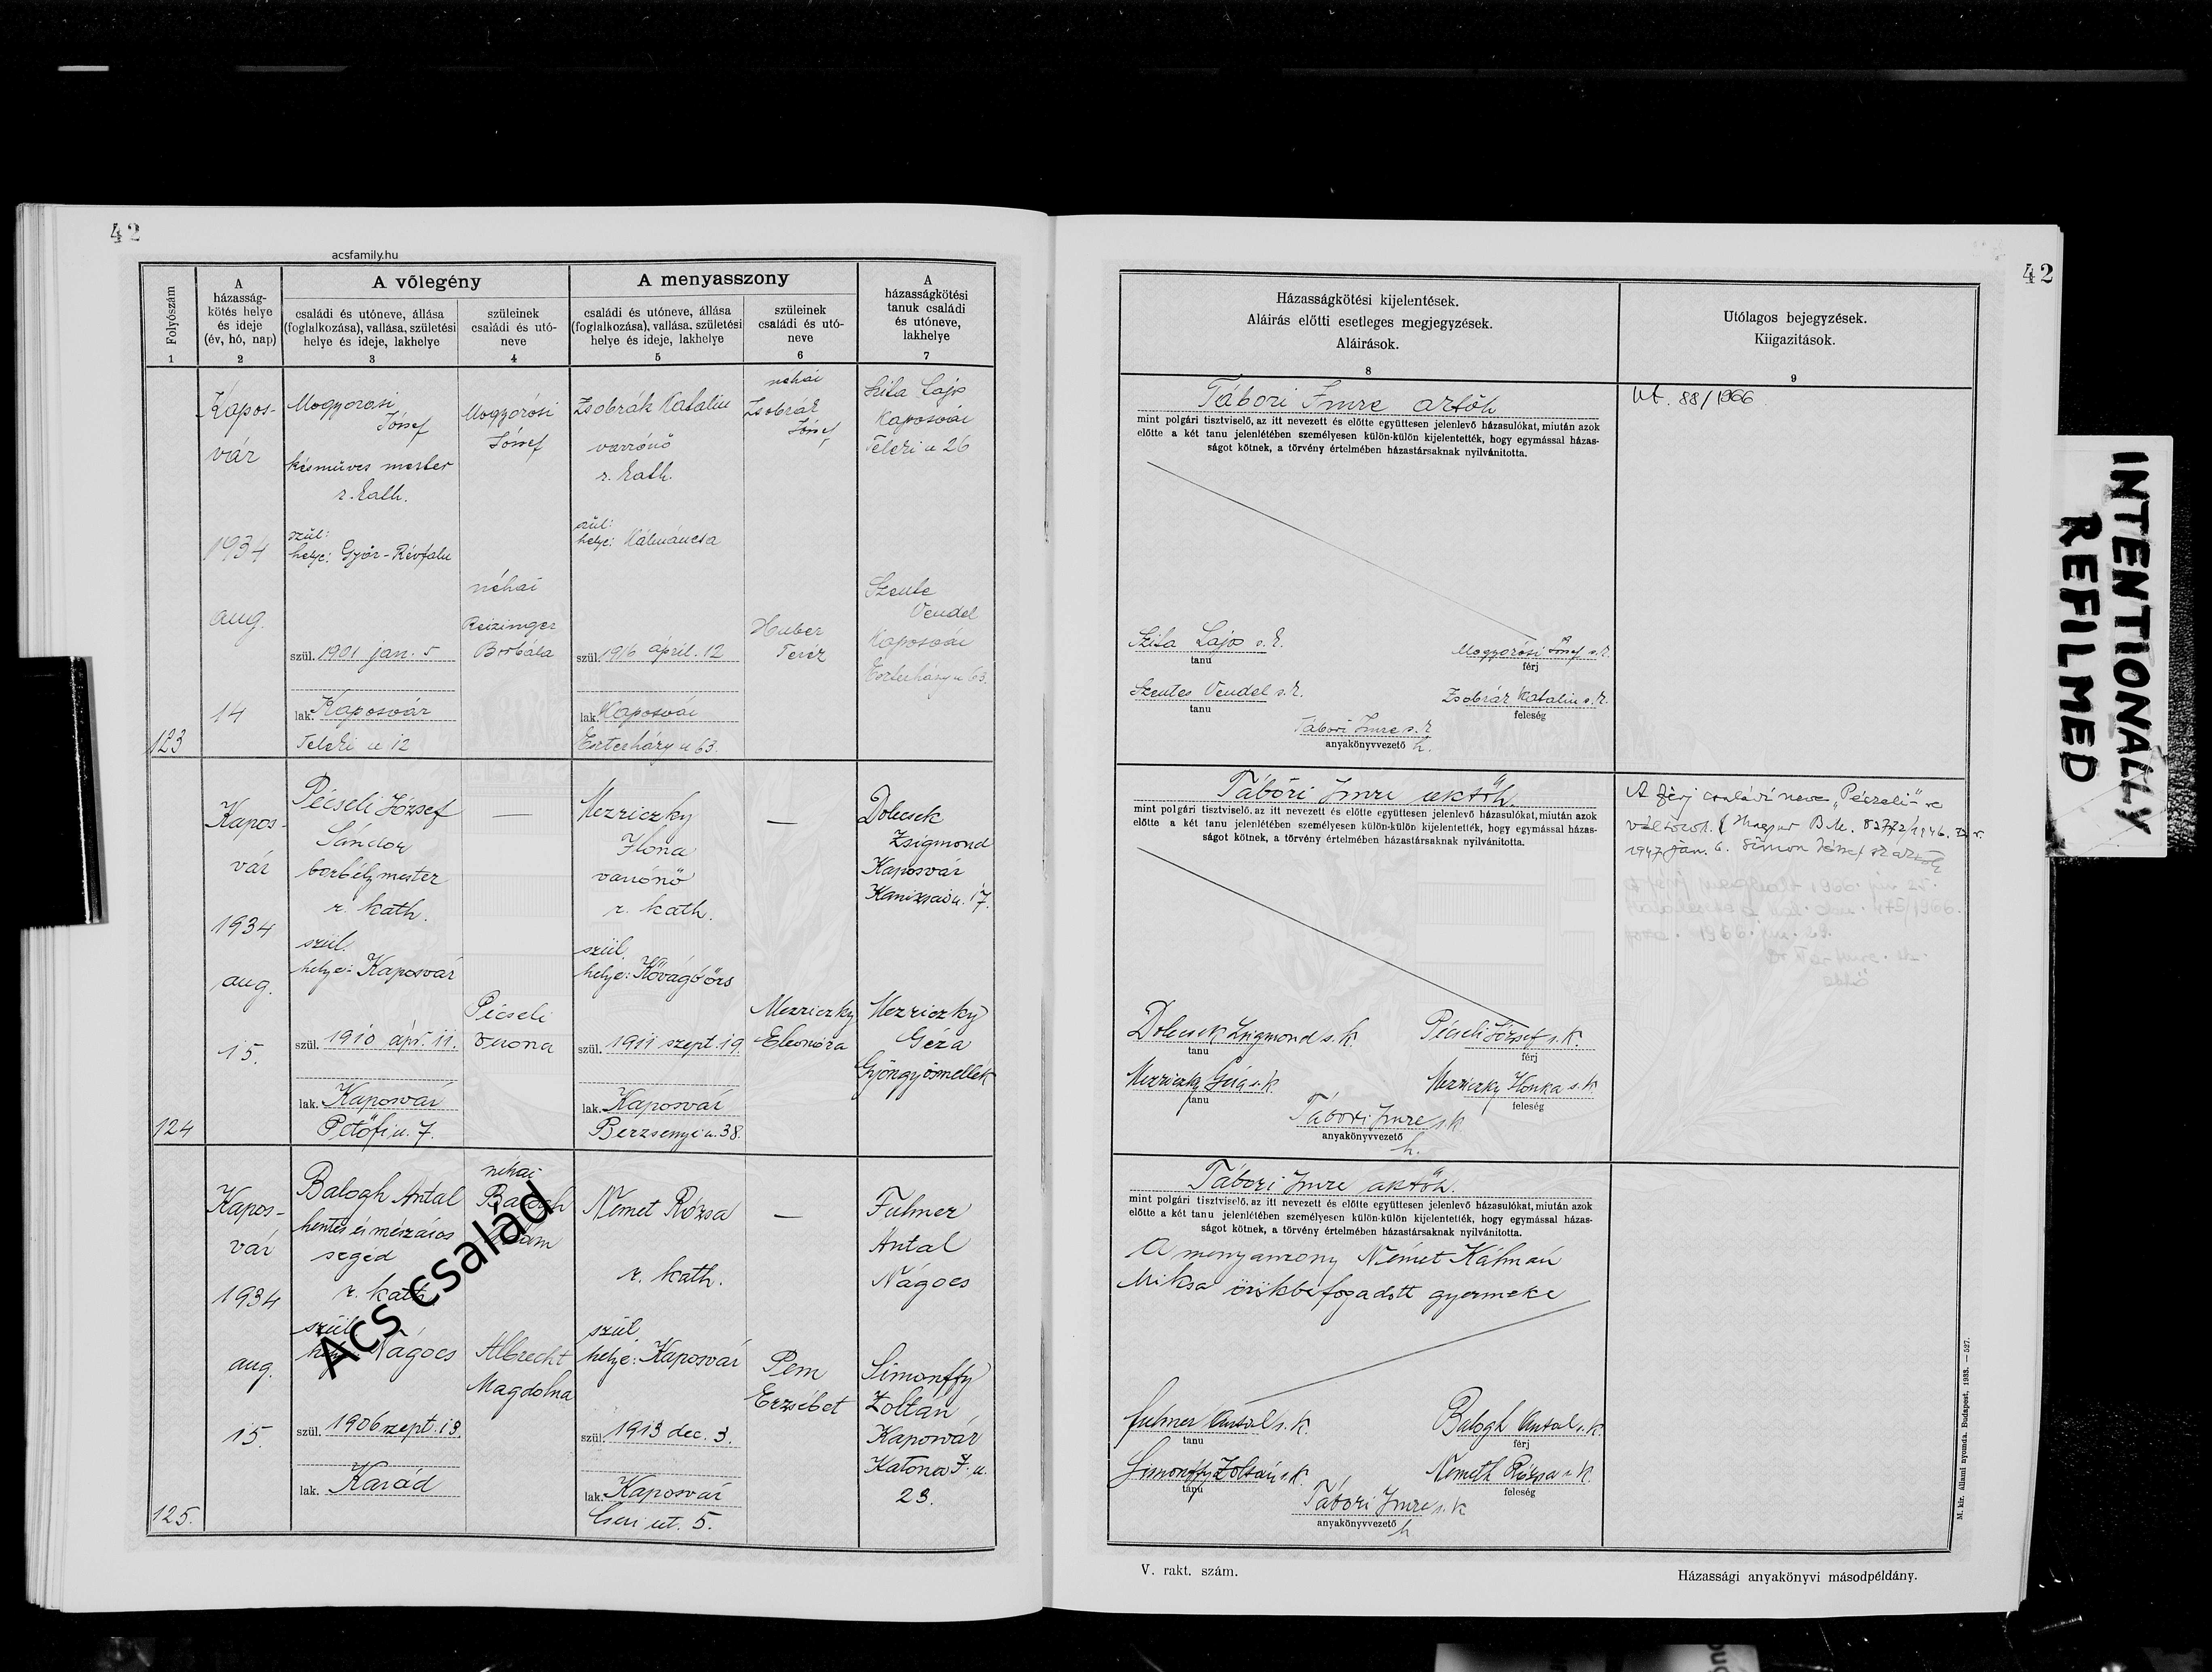 42
acsfamily.hu
Folyószám
A házasság-
kötés helye
és ideje
(év, hó, nap)
A vőlegény
családi és utóneve, állása
(foglalkozása), vallása, születési
helye és ideje, lakhelye
szüleinek
családi és utó-
neve
A menyasszony
családi és utóneve, állása
(foglalkozása), vallása, születési
helye és ideje, lakhelye
szüleinek
családi és utó-
neve
A
házasságkötési
tanuk családi
és utóneve,
lakhelye
1 2 3 4 5 6 7
123
Kapos-
vár
1934
aug.
14
Mogyorósi
József
késműves mester
r. kath.
szül:
helye: Győr-Révfalu
szül. 1901 jan. 5
lak. Kaposvár
Teleki u 12
Mogyorósi
József
néhai
Reizinger
Borbála
Zsobrák Katalin
varrónő
r. kath.
szül:
helye: Kálmáncsa
szül. 1916 ápril. 12
lak. Kaposvár
Eszterházy u 63.
néhai
Zsobrák
József
Huber
Teréz
Szita Lajos
Kaposvár
Teleki u 26
Szente
Vendel
Kaposvár
Eszterházy u 63.
124
Kapos-
vár
1934
aug.
15.
Pécseli József
Sándor
borbély mester
r. kath.
szül.
helye: Kaposvár
szül. 1910 ápr. 11.
lak. Kaposvár
Petőfi u. 7.
—
Pécseli
Verona
Mezriczky
Ilona
varrónő
r. kath.
szül.
helye: Kővágóörs
szül. 1911 szept. 19.
lak. Kaposvár
Berzsenyi u. 38.
—
Mezriczky
Eleonóra
Dolecsek
Zsigmond
Kaposvár
Kanizsai u. 17.
Mezriczky
Géza
Gyöngyösmellék
125.
Kapos-
vár
1934
aug.
15.
Balogh Antal
hentes és mészáros
segéd
r. kath.
szül.
helye: Nágocs
szül. 1906 szept. 13.
lak. Karád
néhai
Balogh
Albrecht
Magdolna
Német Rózsa
r. kath.
szül.
helye: Kaposvár
szül. 1913 dec. 3.
lak. Kaposvár
Cseri út. 5.
—
Pem
Erzsébet
Fulmer
Antal
Nágocs
Simonffy
Zoltán
Kaposvár
Katona J. u.
23.
Acs család
42
Házasságkötési kijelentések.
Aláírás előtti esetleges megjegyzések.
Aláirások.
8
Utólagos bejegyzések.
Kiigazitások.
9
Tábori Imre
mint polgári tisztviselő, az itt nevezett és előtte együttesen jelenlevő házasulókat, miután azok
előtte a két tanu jelenlétében személyesen külön-külön kijelentették, hogy egymással házas-
ságot kötnek, a törvény értelmében házastársaknak nyilvánitotta.
Szita Lajos s. k.
tanu
Mogyorósi József s. k.
férj
Szentes Vendel s. k.
tanu
Zsobrák Katalin s. k.
feleség
Tábori Imre s. k
anyakönyvvezető h.
Ut. 88/1966
Tábori Imre
mint polgári tisztviselő, az itt nevezett és előtte együttesen jelenlevő házasulókat, miután azok
előtte a két tanu jelenlétében személyesen külön-külön kijelentették, hogy egymással házas-
ságot kötnek, a törvény értelmében házastársaknak nyilvánitotta.
Dolecsek Zsigmond s. k.
tanu
Pécseli József s. k.
férj
Mezriczky Géza s. k
tanu
Mezriczky Ilonka s. k
feleség
Tábori Imre s. k
anyakönyvvezető
h.
A férj családi neve „Péczeli"-re
változott. Magyar B. M.
1947 jan. 6. Simon József
A férj meghalt 1966.
475/1966.
1966.
Tábori Imre
mint polgári tisztviselő, az itt nevezett és előtte együttesen jelenlevő házasulókat, miután azok
előtte a két tanu jelenlétében személyesen külön-külön kijelentették, hogy egymással házas-
ságot kötnek, a törvény értelmében házastársaknak nyilvánitotta.
A menyasszony Német Kálmán
Miksa örökbefogadott gyermeke
Fulmer Antal s. k.
tanu
Balogh Antal s. k.
férj
Simonffy Zoltán s. k.
tanu
Németh Rózsa s. k.
feleség
Tábori Imre s. k
anyakönyvvezető
h
V. rakt. szám.
Házassági anyakönyvi másodpéldány.
M. kir. állami nyomda. Budapest, 1933. — 527.
INTENTIONALLY
REFILMED